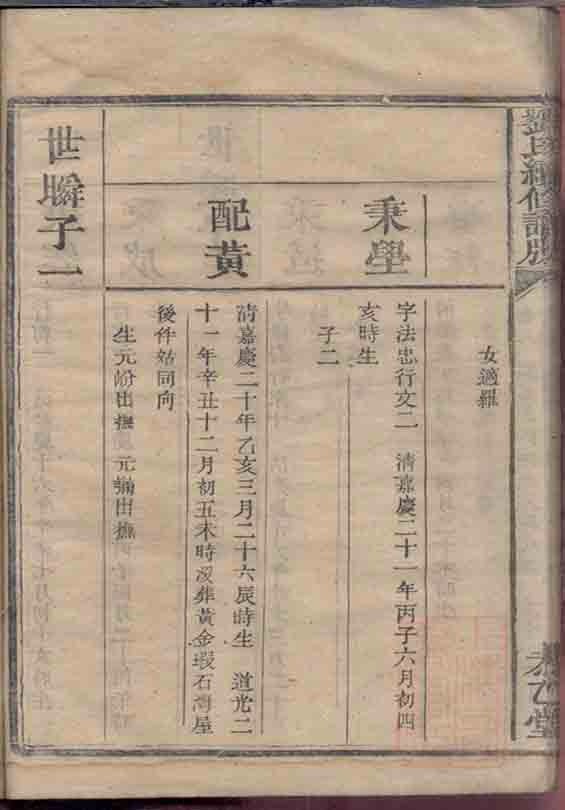 劉氏續修譜牒
女適羅
秉學
字法忠行文二 清嘉慶二十一年丙子六月初四
亥時生
子二
配黃
清嘉慶二十年乙亥三月二十六辰時生 道光二
十一年辛丑十二月初五未時沒葬黃金瑕石灣屋
後伴姑同向
生元份出撫 元 出撫
世瞬子一